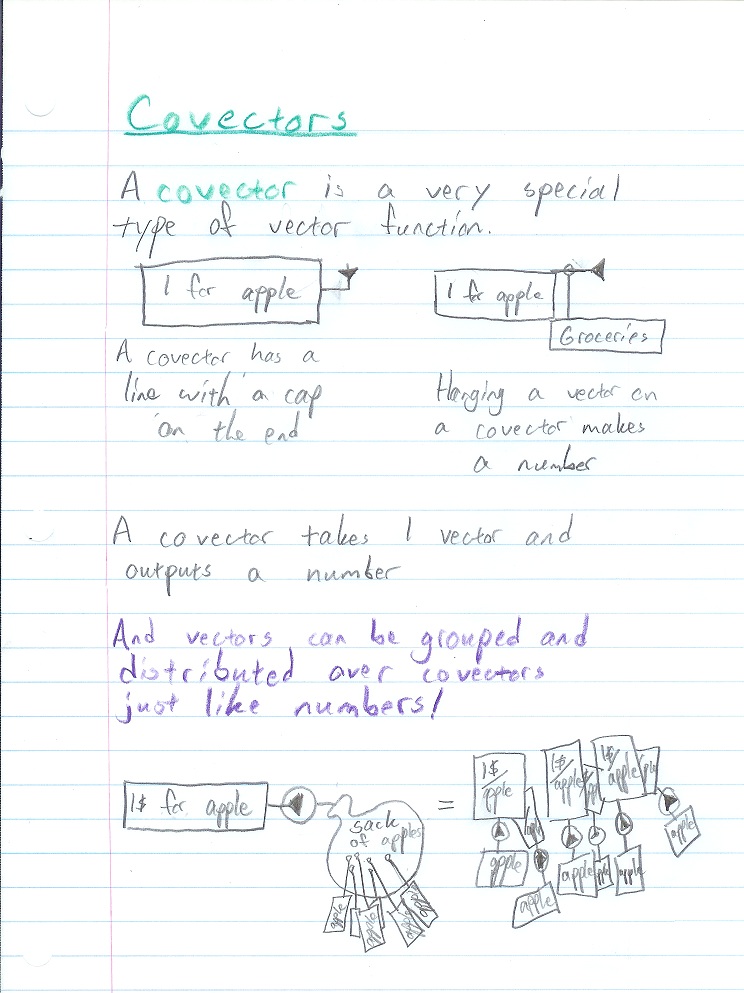 Covectors
A covector is a very special
type of vector function.
1 for apple
1 for apple
Groceries
A covector has a
line with a cap
on the end
Hanging a vector on
a covector makes
a number
A covector takes 1 vector and
outputs a number
And vectors can be grouped and
distributed over covectors
just like numbers!
1$ for apple
sack
of apples
apple
apple
apple
apple
=
1$/
apple
1$/
apple
1$/
apple
apple
apple
apple
apple
apple